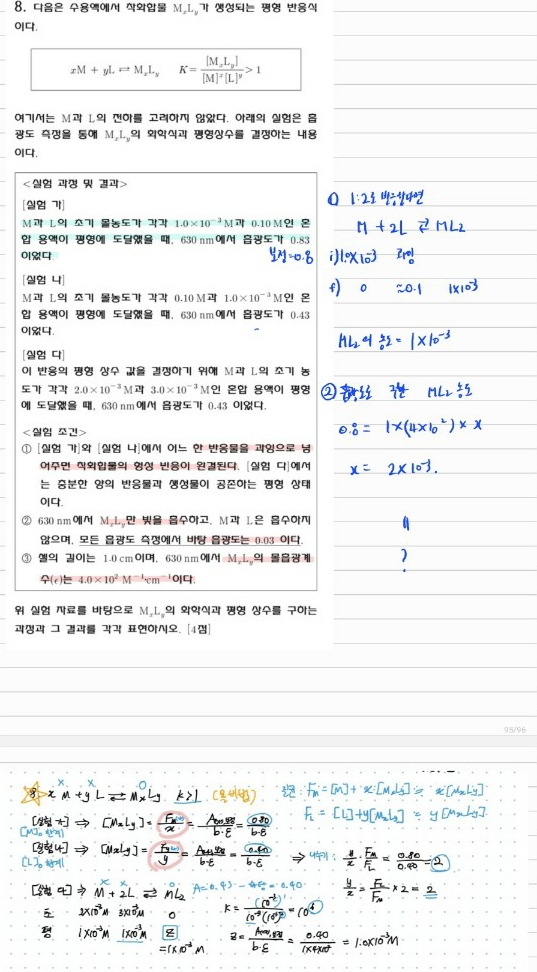 8. 다음은 수용액에서 착화합물 MₓL_y가 생성되는 평형 반응식
이다.
xM + yL ⇄ MₓL_y   K = [MₓL_y] / [M]ˣ[L]ʸ > 1
여기서는 M과 L의 전하를 고려하지 않았다. 아래의 실험은 흡
광도 측정을 통해 MₓL_y의 화학식과 평형상수를 결정하는 내용
이다.
<실험 과정 및 결과>
[실험 가]
M과 L의 초기 몰농도가 각각 1.0×10⁻³ M과 0.10 M인 혼
합 용액이 평형에 도달했을 때, 630 nm에서 흡광도가 0.83
이었다.
보정=0.8
[실험 나]
M과 L의 초기 몰농도가 각각 0.10 M과 1.0×10⁻³ M인 혼
합 용액이 평형에 도달했을 때, 630 nm에서 흡광도가 0.43
이었다.
[실험 다]
이 반응의 평형 상수 값을 결정하기 위해 M과 L의 초기 농
도가 각각 2.0×10⁻³ M과 3.0×10⁻³ M인 혼합 용액이 평형
에 도달했을 때, 630 nm에서 흡광도가 0.43 이었다.
<실험 조건>
① [실험 가]와 [실험 나]에서 어느 한 반응물을 과잉으로 넣
어주면 착화합물의 형성 반응이 완결된다. [실험 다]에서
는 충분한 양의 반응물과 생성물이 공존하는 평형 상태
이다.
② 630 nm에서 MₓL_y만 빛을 흡수하고, M과 L은 흡수하지
않으며, 모든 흡광도 측정에서 바탕 흡광도는 0.03 이다.
③ 셀의 길이는 1.0 cm이며, 630 nm에서 MₓL_y의 몰흡광계
수(ε)는 4.0×10² M⁻¹·cm⁻¹이다.
위 실험 자료를 바탕으로 MₓL_y의 화학식과 평형 상수를 구하는
과정과 그 결과를 각각 표현하시오. [4점]
① 1:2로 반응한다면
M + 2L ⇄ ML₂
i) 1.0×10⁻³ 과잉
f) 0 ≈0.1 1×10⁻³
ML₂의 농도 = 1×10⁻³
② 흡광도로 구한 ML₂ 농도
0.8 = 1×(4×10²)× x
x = 2×10⁻³.
?
95/96
x M + y L ⇄ MₓL_y K>1
[실험 가] ⇒ [MₓL_y] = F_M / x = A / b·ε = 0.80 / b·ε
[M]₀ 한계
[실험 나] ⇒ [MₓL_y] = F_L / y = A / b·ε = 0.40 / b·ε
[L]₀ 한계
F_M = [M] + x[MₓL_y] ≒ x[MₓL_y]
F_L = [L] + y[MₓL_y] ≒ y[MₓL_y]
⇒ 나누기 : y/x · F_M/F_L = 0.80/0.40 = 2
y/x = F_L/F_M × 2 = 2
[실험 다] ⇒ M + 2L ⇄ ML₂
초 2×10⁻³M 3×10⁻³M 0
평 1×10⁻³M 1×10⁻³M z
=1×10⁻³ M
z = A / b·ε = 0.40 / 1×4×10² = 1.0×10⁻³ M